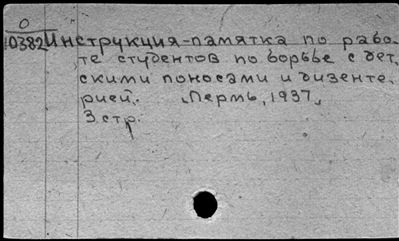 О
10382 Инструкция-памятка по рабо-
те студентов по борьбе с дет.
скими поносами и дизенте.
рией. Пермь, 1937.
3 стр.